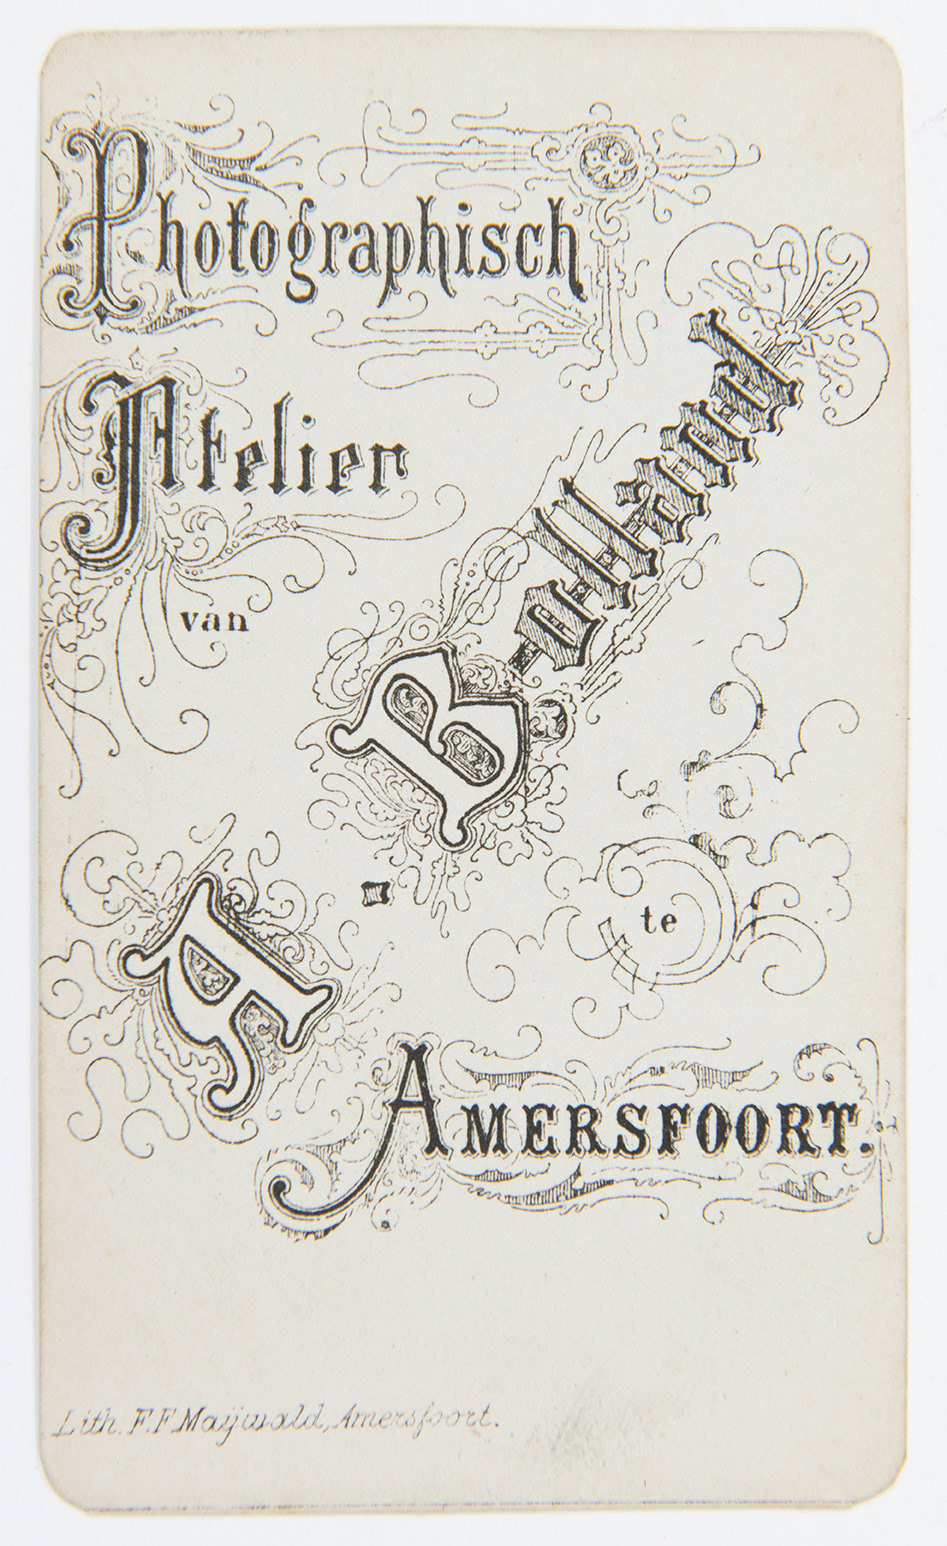 Photographisch
Atelier
van
A. Bolland
te
AMERSFOORT.
Lith. F.F. Maijwald, Amersfoort.